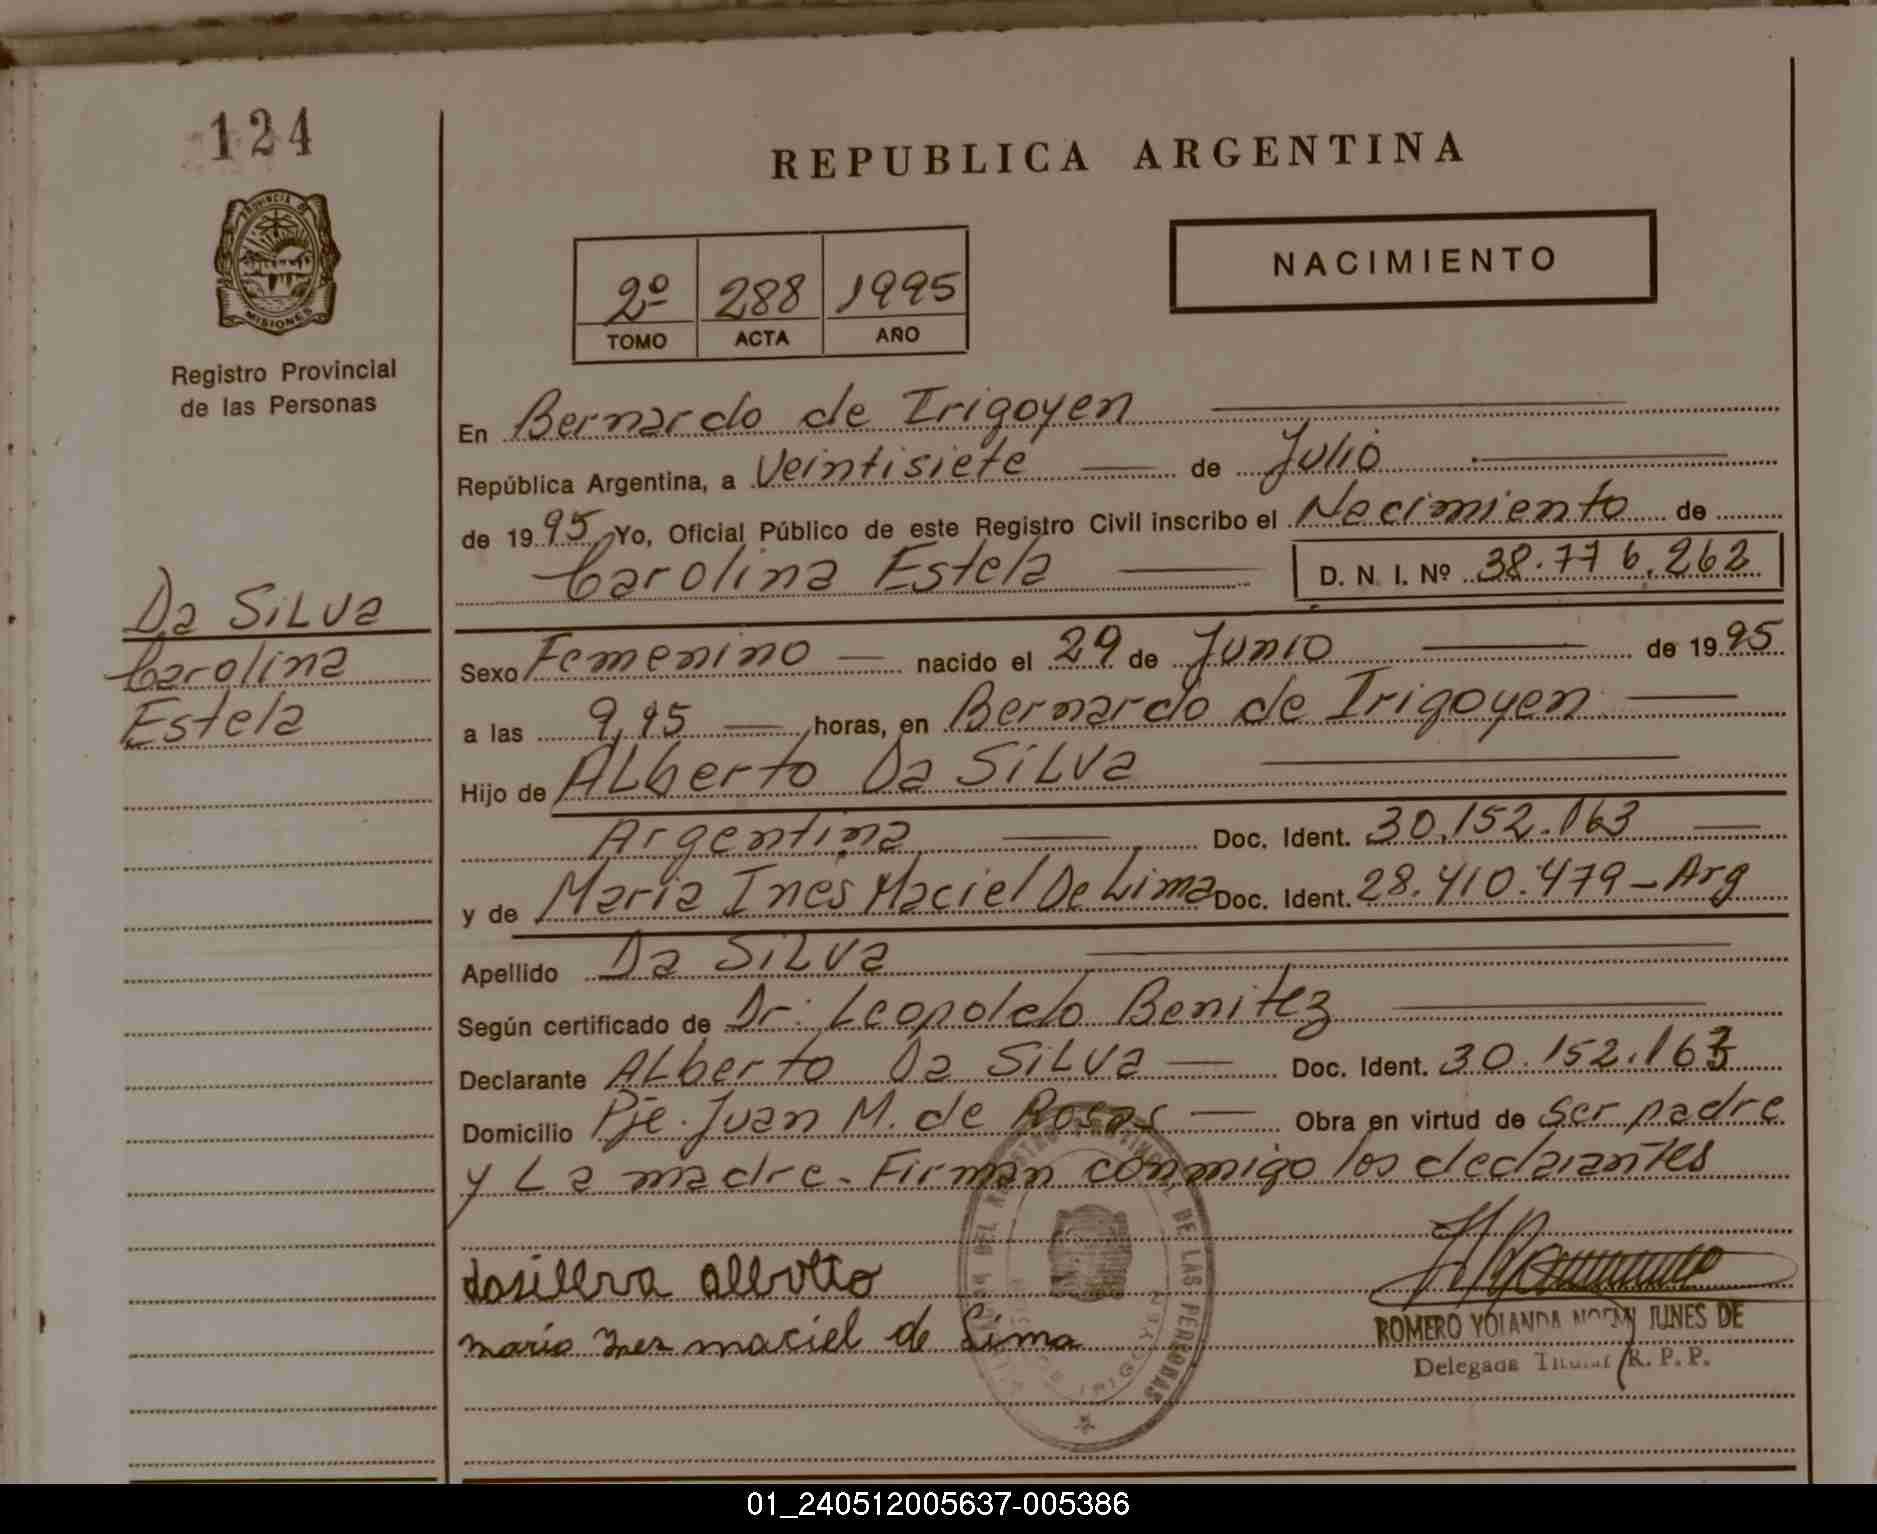 124
REPUBLICA ARGENTINA
PROVINCIA DE
MISIONES
NACIMIENTO
2º 288 1995
TOMO ACTA AÑO
Registro Provincial
de las Personas
En Bernardo de Irigoyen
República Argentina, a Veintisiete de Julio
de 1995 Yo, Oficial Público de este Registro Civil inscribo el Nacimiento de
Carolina Estela D. N. I. Nº 38.776.262
Da SiLva
Carolina
Estela
Sexo Femenino nacido el 29 de Junio de 1995
a las 9,45 horas, en Bernardo de Irigoyen
Hijo de ALberto Da SiLva
Argentina Doc. Ident. 30.152.163
y de Maria Ines Maciel De Lima Doc. Ident. 28.410.479 - Arg
Apellido Da SiLva
Según certificado de Dr. Leopoldo Benitez
Declarante ALberto Da SiLva Doc. Ident. 30.152.163
Domicilio Pje. Juan M. de Rosas Obra en virtud de ser padre
y La madre. Firman conmigo los declarantes
dasillva alberto
maria ines maciel de Lima
DEL REGISTRO PROVINCIAL DE LAS PERSONAS
IRIGOYEN
ROMERO YOLANDA NOEMI JUNES DE
Delegada Titular R. P. P.
01_240512005637-005386